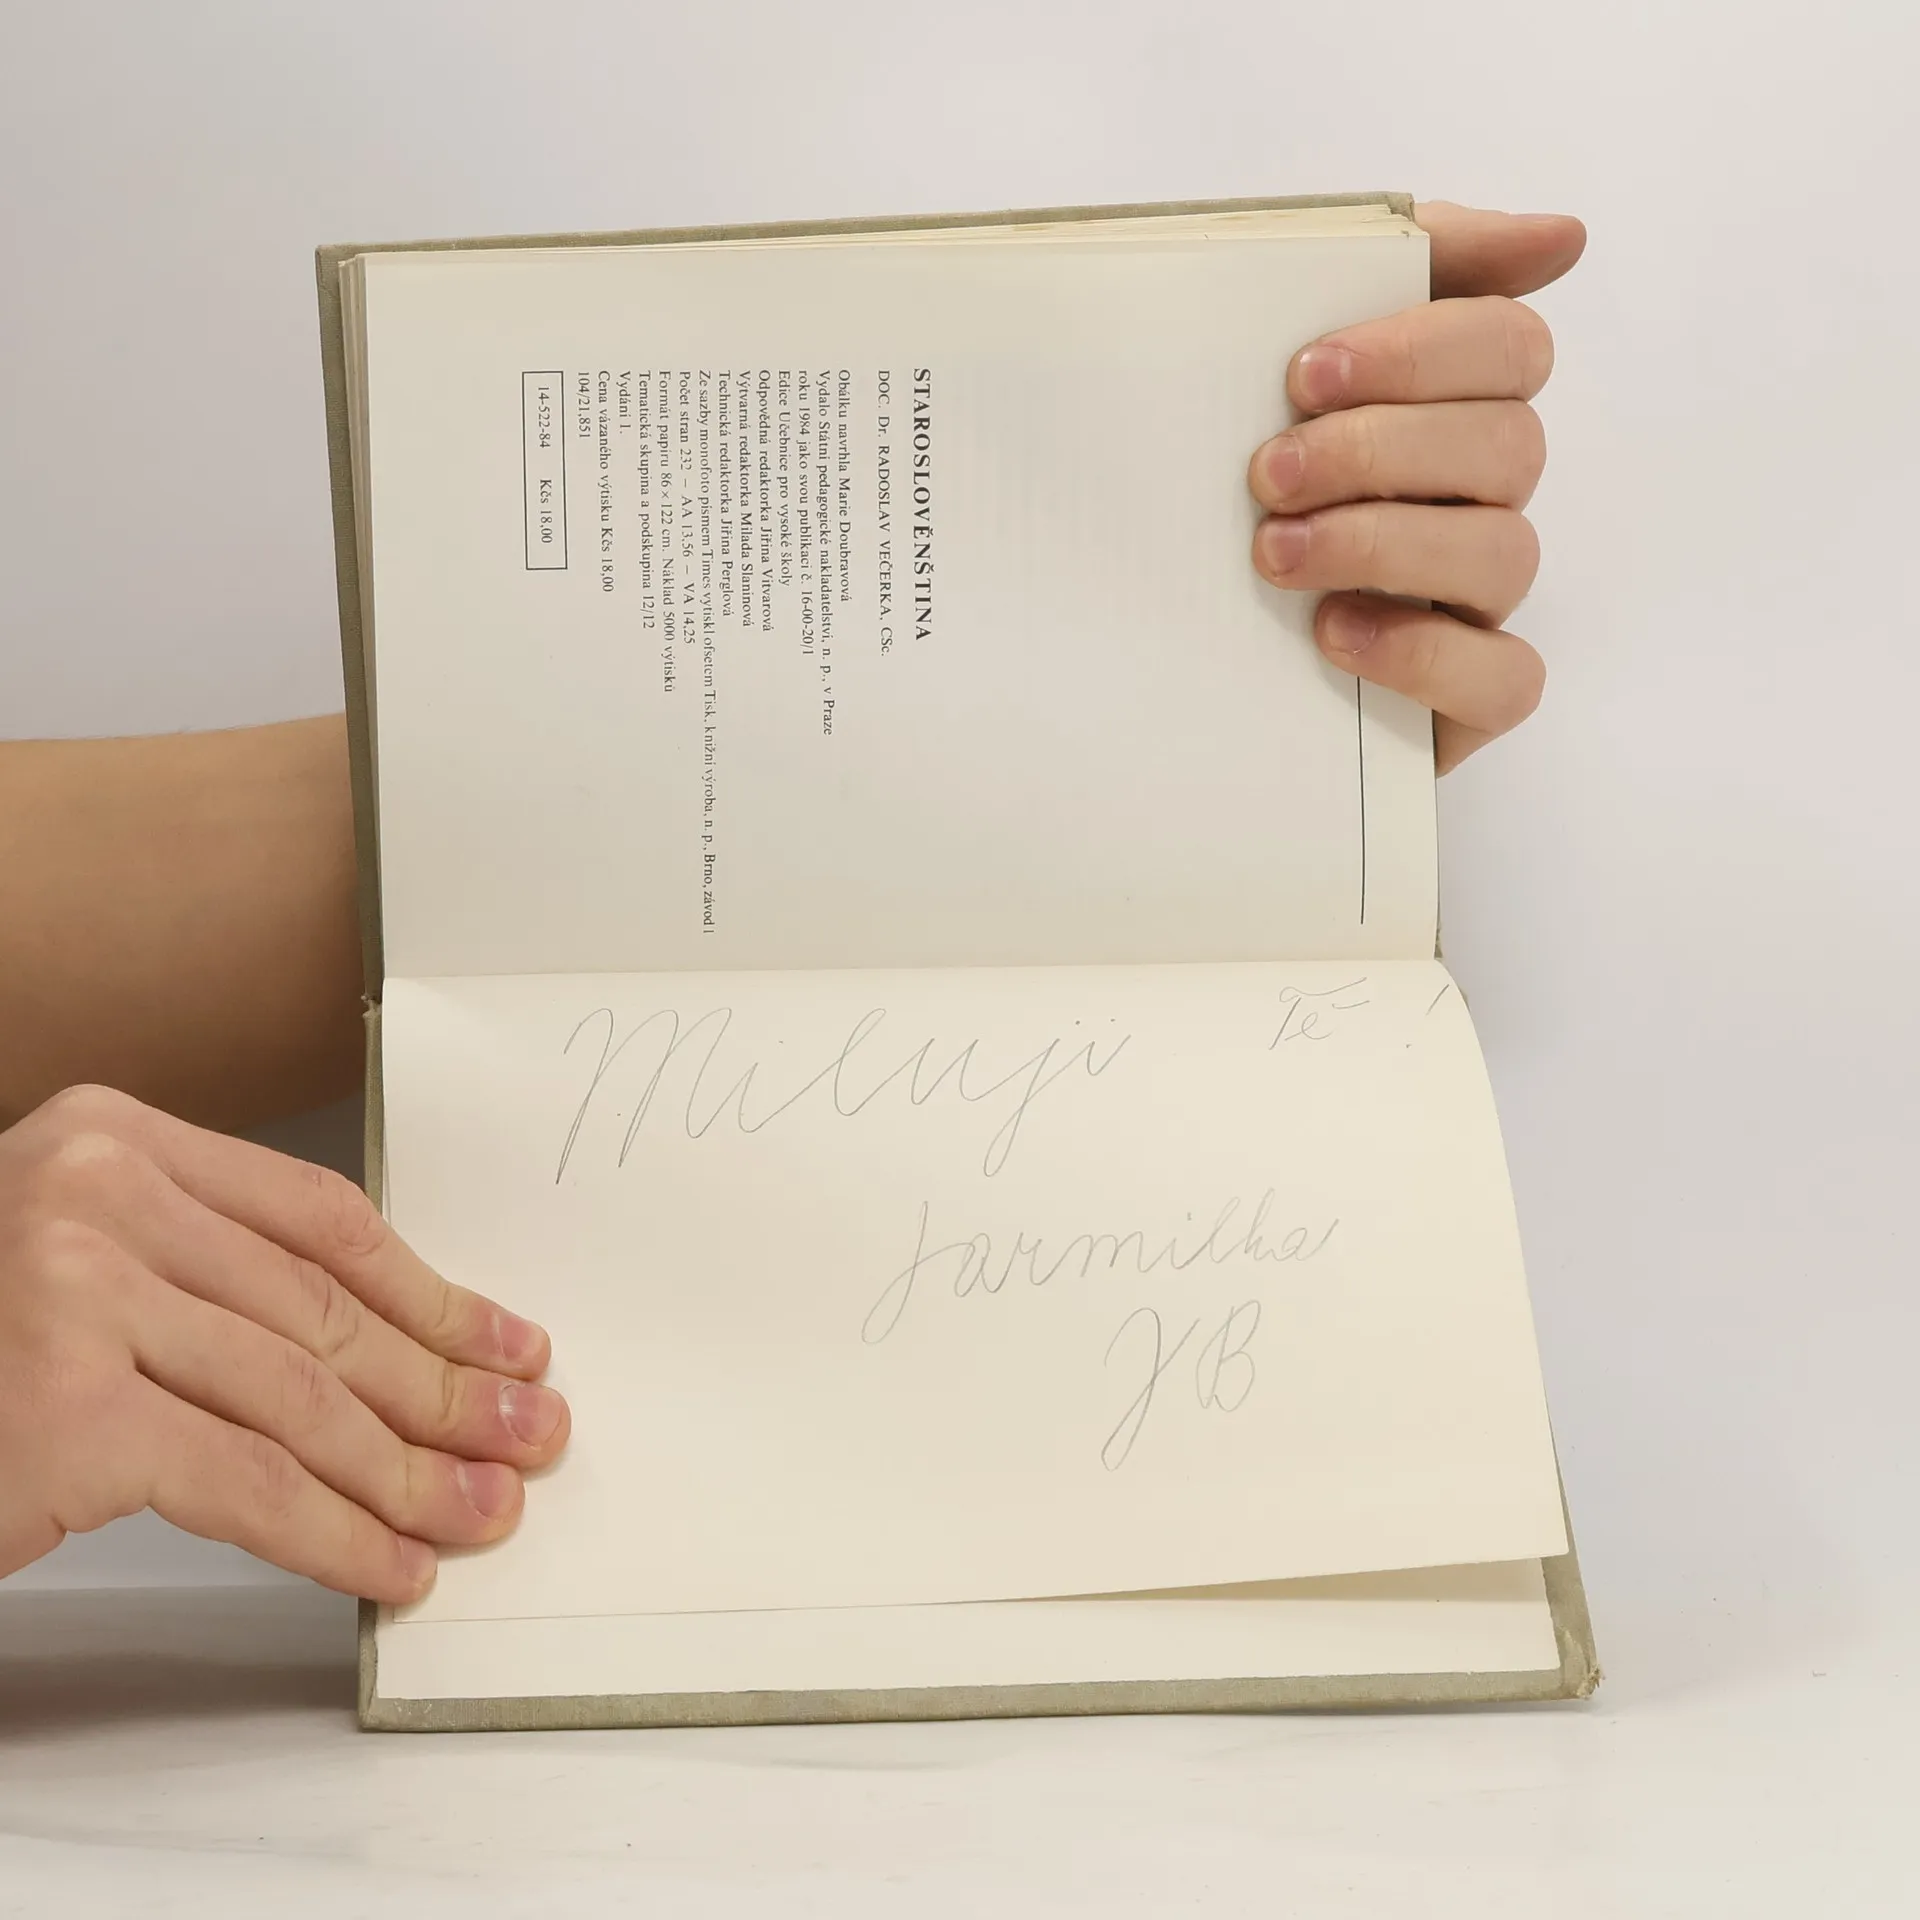 STAROSLOVĚNŠTINA
DOC. Dr. RADOSLAV VEČERKA, CSc.
Obálku navrhla Marie Doubravová
Vydalo Státní pedagogické nakladatelství, n. p., v Praze
roku 1984 jako svou publikaci č. 16-00-20/1
Edice Učebnice pro vysoké školy
Odpovědná redaktorka Jiřina Vitvarová
Výtvarná redaktorka Milada Slaninová
Technická redaktorka Jiřina Perglová
Ze sazby monofoto písmem Times vytiskl ofsetem Tisk, knižní výroba, n. p., Brno, závod 1
Počet stran 232 – AA 13,56 – VA 14,25
Formát papíru 86 × 122 cm. Náklad 5000 výtisků
Tematická skupina a podskupina 12/12
Vydání 1.
Cena vázaného výtisku Kčs 18,00
104/21,851
14-522-84 Kčs 18,00
Miluji Tě !
Jarmilka
JB